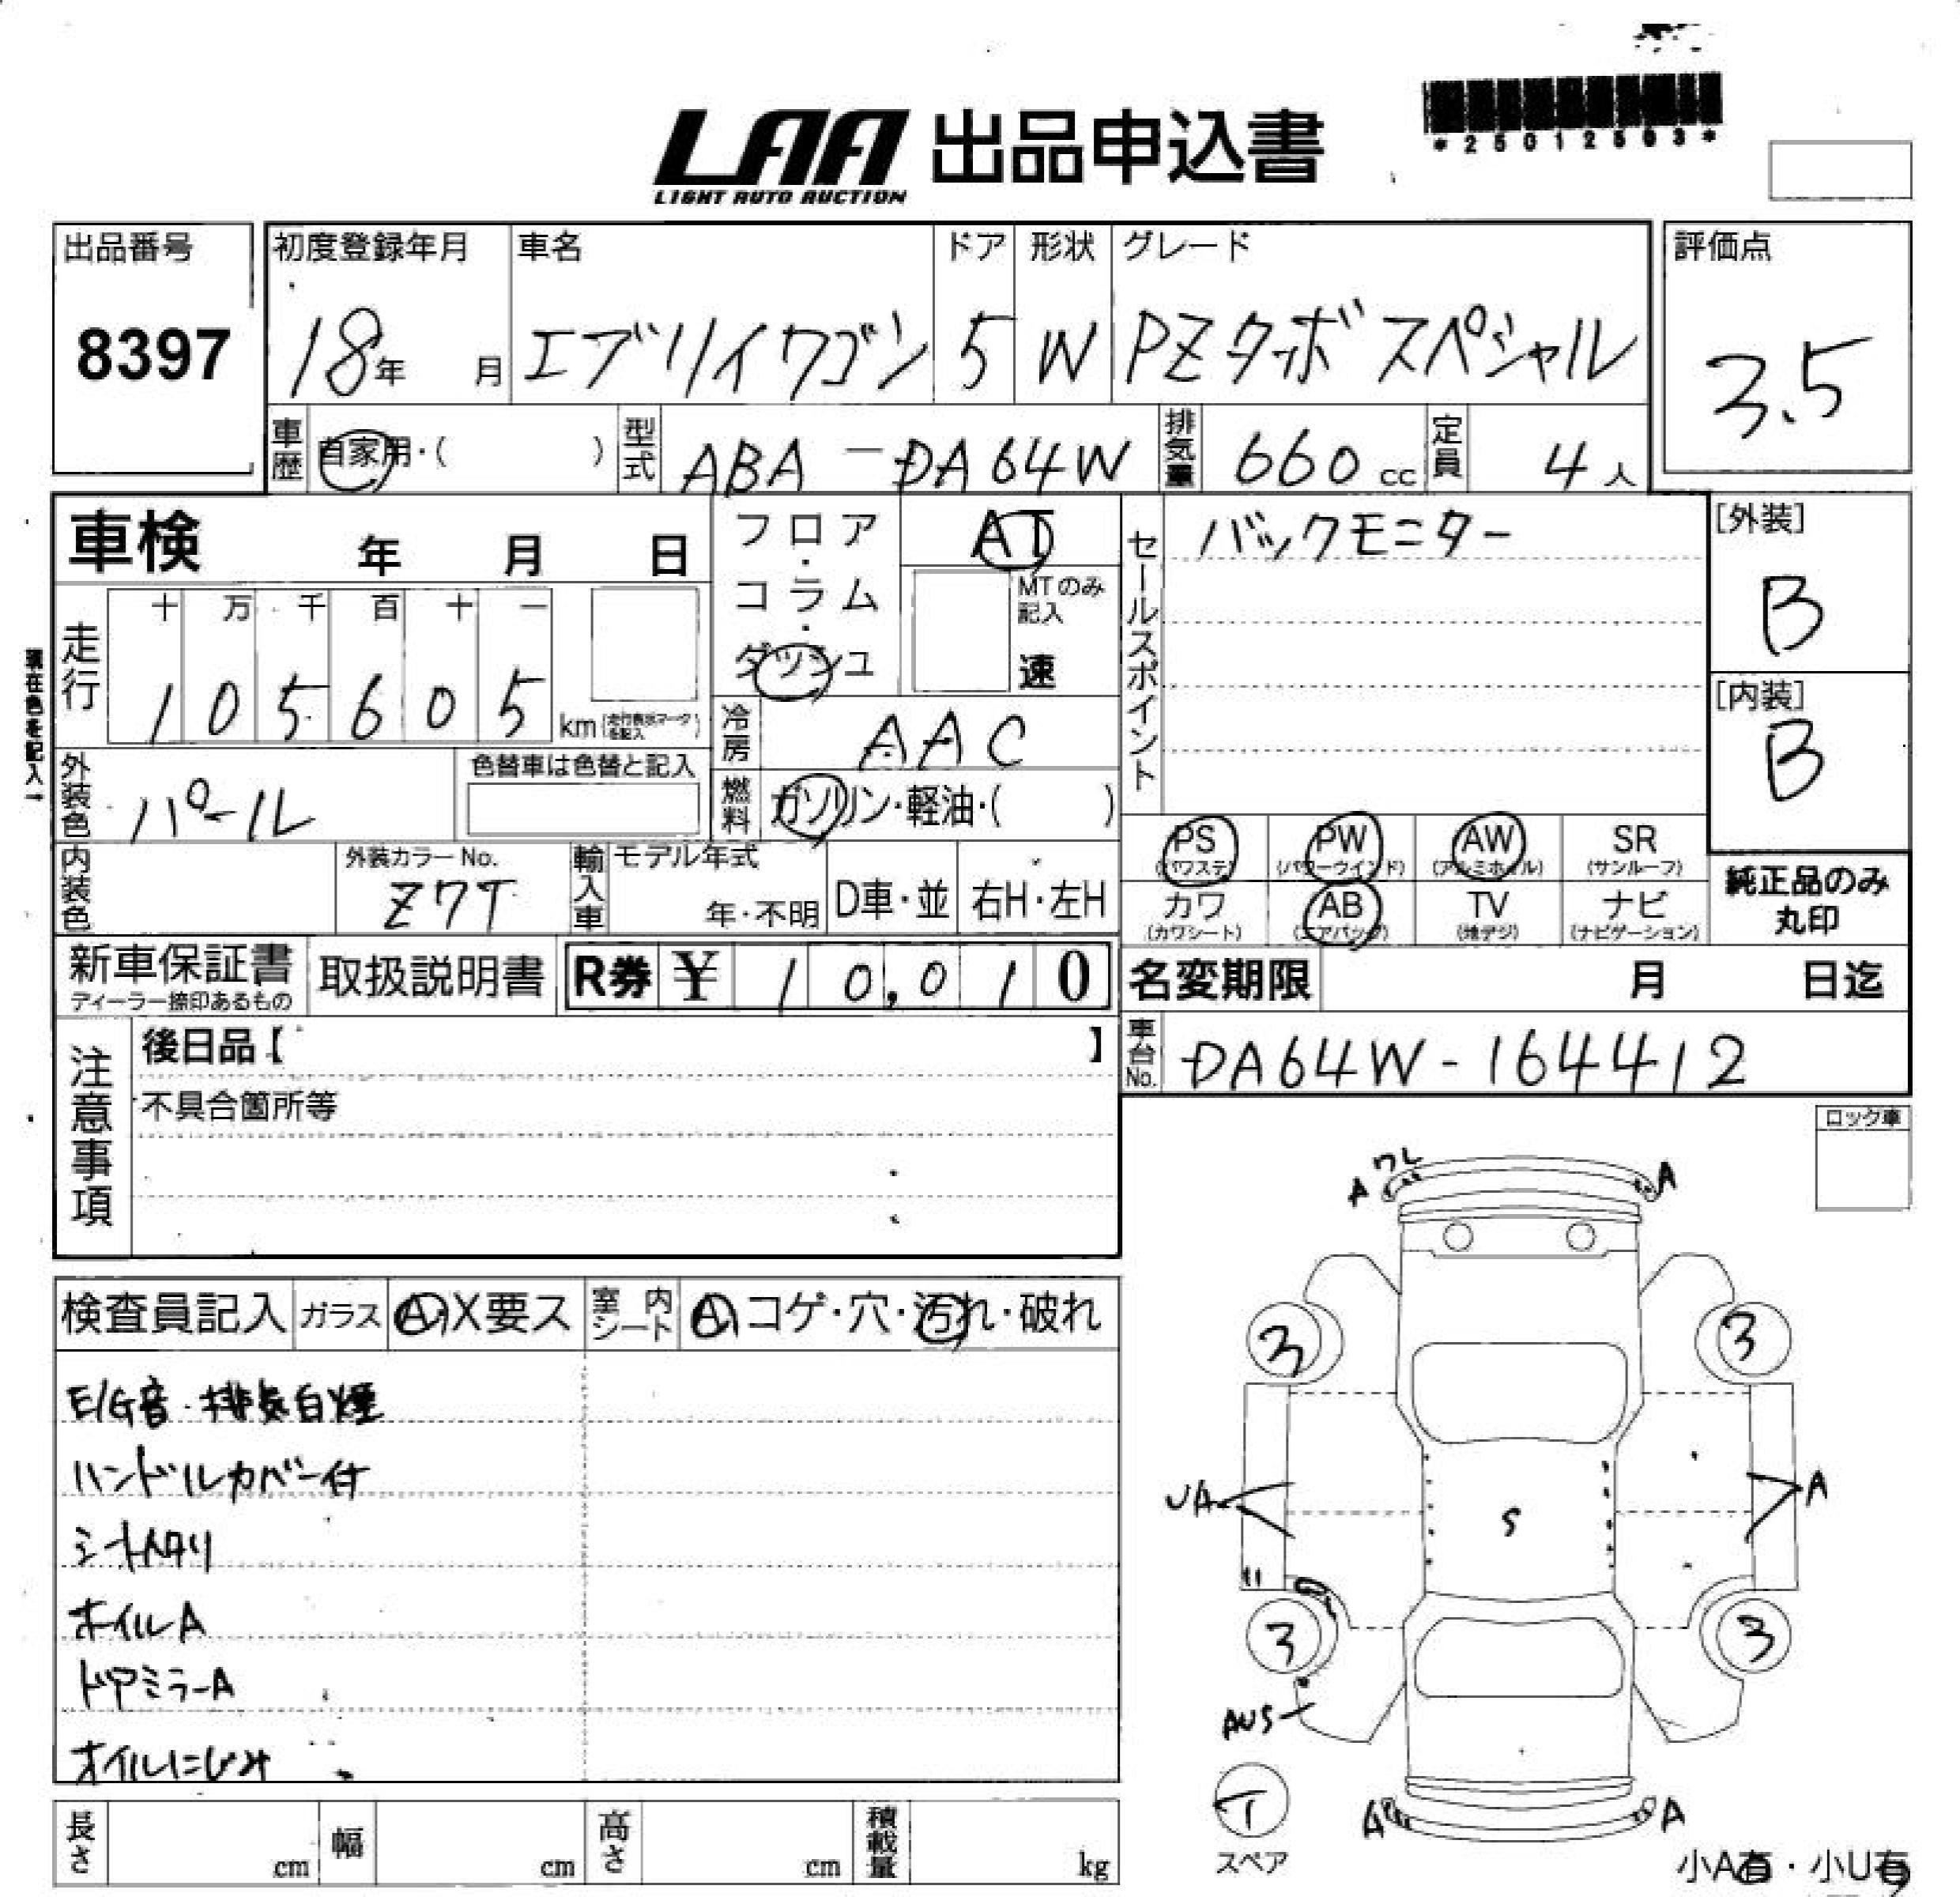 LAA 出品申込書
LIGHT AUTO AUCTION
*25012503*
出品番号
8397
初度登録年月
18年 月
車名
エブリイワゴン
ドア
5
形状
W
グレード
PZターボスペシャル
評価点
3.5
車歴 自家用・( )
型式 ABA-DA64W
排気量 660 cc
定員 4人
車検 年 月 日
フロア・コラム・ダッシュ
AT
MTのみ記入
速
セールスポイント
バックモニター
[外装]
B
[内装]
B
現在色を記入→
走行
十 万 千 百 十 一
1 0 5 6 0 5 km
冷房 AAC
外装色 パール
色替車は色替と記入
燃料 ガソリン・軽油・( )
PS (パワステ)
PW (パワーウインド)
AW (アルミホイル)
SR (サンルーフ)
カワ (カワシート)
AB (エアバッグ)
TV (地デジ)
ナビ (ナビゲーション)
純正品のみ
丸印
内装色
外装カラーNo.
Z7T
輸入車
モデル年式
年・不明
D車・並
右H・左H
新車保証書
ディーラー捺印あるもの
取扱説明書
R券 ¥ 10,010
名変期限 月 日迄
車台No. DA64W-164412
注意事項
後日品【 】
不具合箇所等
ロック車
検査員記入
ガラス A・X要ス
室内シート A コゲ・穴・汚れ・破れ
E/G音・排気白煙
ハンドルカバー付
シートヘタリ
ホイルA
ドアミラーA
オイルにじみ
A ワレ A
3 3
UA S A
3 3
AUS
T
スペア
A A
小A有・小U有
長さ cm
幅 cm
高さ cm
積載量 kg